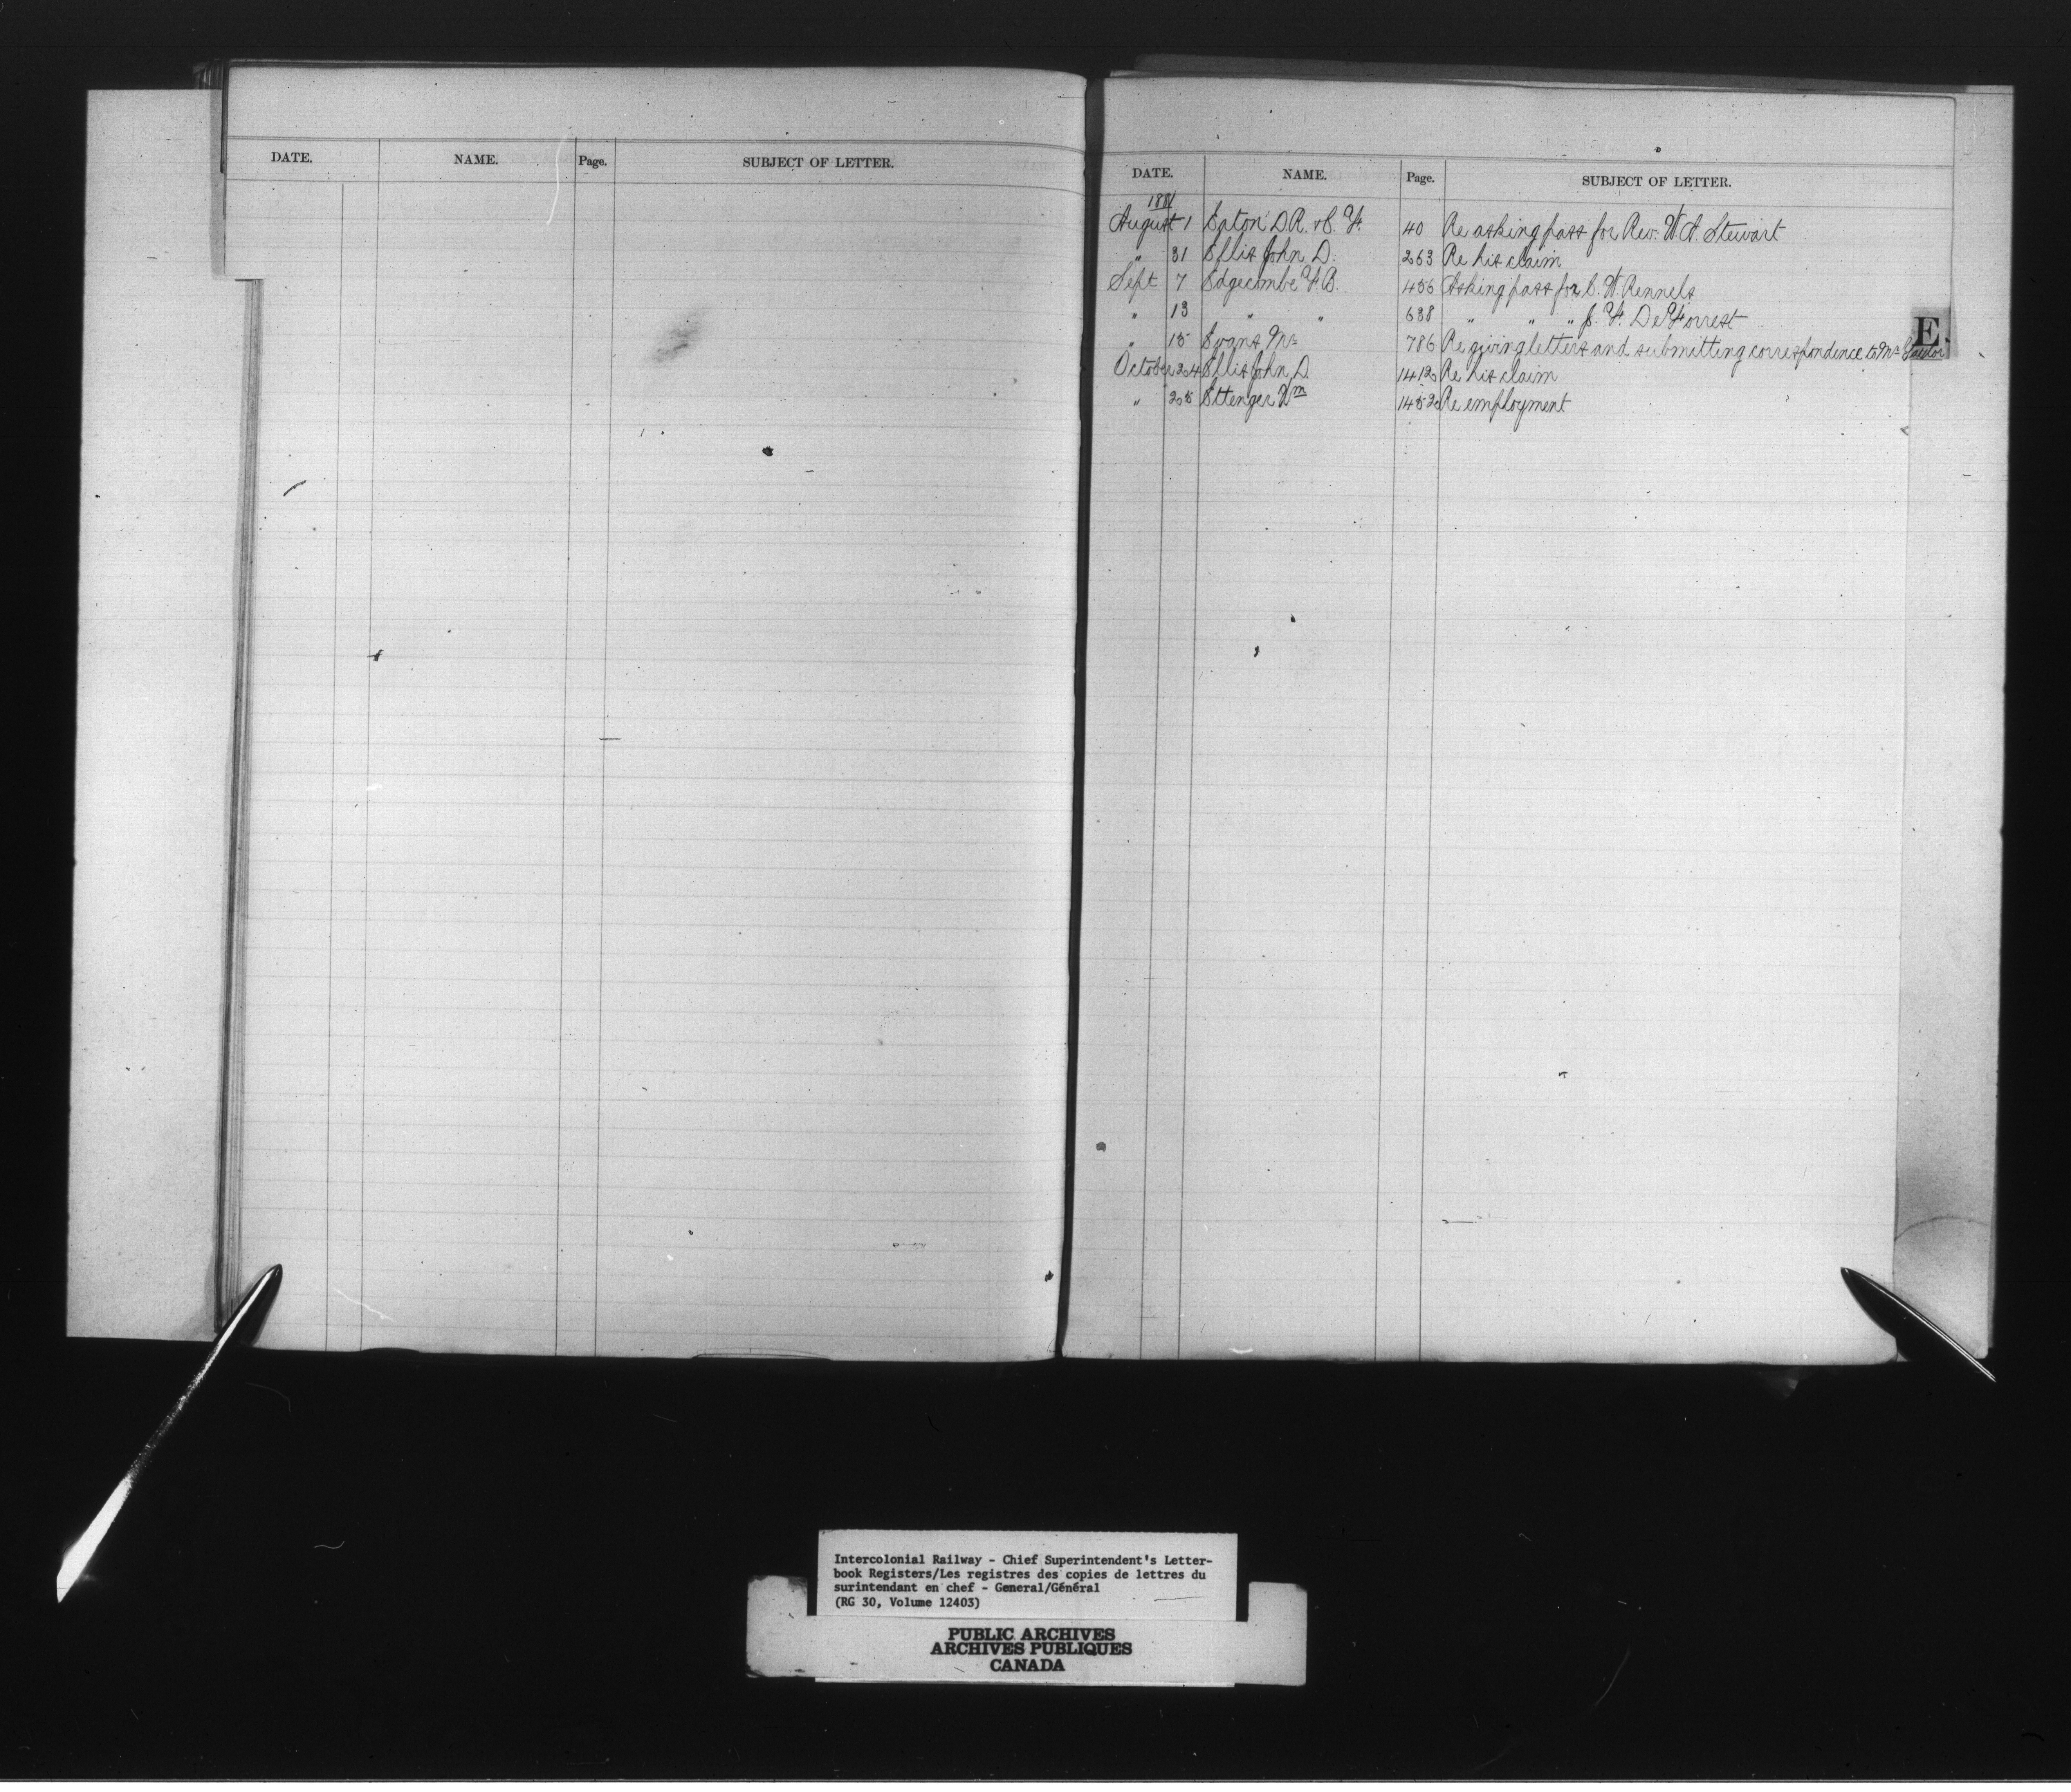 DATE. NAME. Page. SUBJECT OF LETTER.
DATE. NAME. Page. SUBJECT OF LETTER.
1881
August 1 Eaton D.R. & C. F. 40 Re asking pass for Rev. W. A. Stewart
" 31 Ellis John D. 263 Re his claim
Sept 7 Edgecombe F. B. 456 Asking pass for C. W. Rennels
" 13 " " 638 " " " J. F. De Forrest
" 15 Evans Mr 786 Re giving letters and submitting correspondence to Mr
October 24 Ellis John D. 1412 Re his claim
" 25 Ettenger Wm 1452 Re employment
E.
Intercolonial Railway - Chief Superintendent's Letter-
book Registers/Les registres des copies de lettres du
surintendant en chef - General/Général
(RG 30, Volume 12403)
PUBLIC ARCHIVES
ARCHIVES PUBLIQUES
CANADA